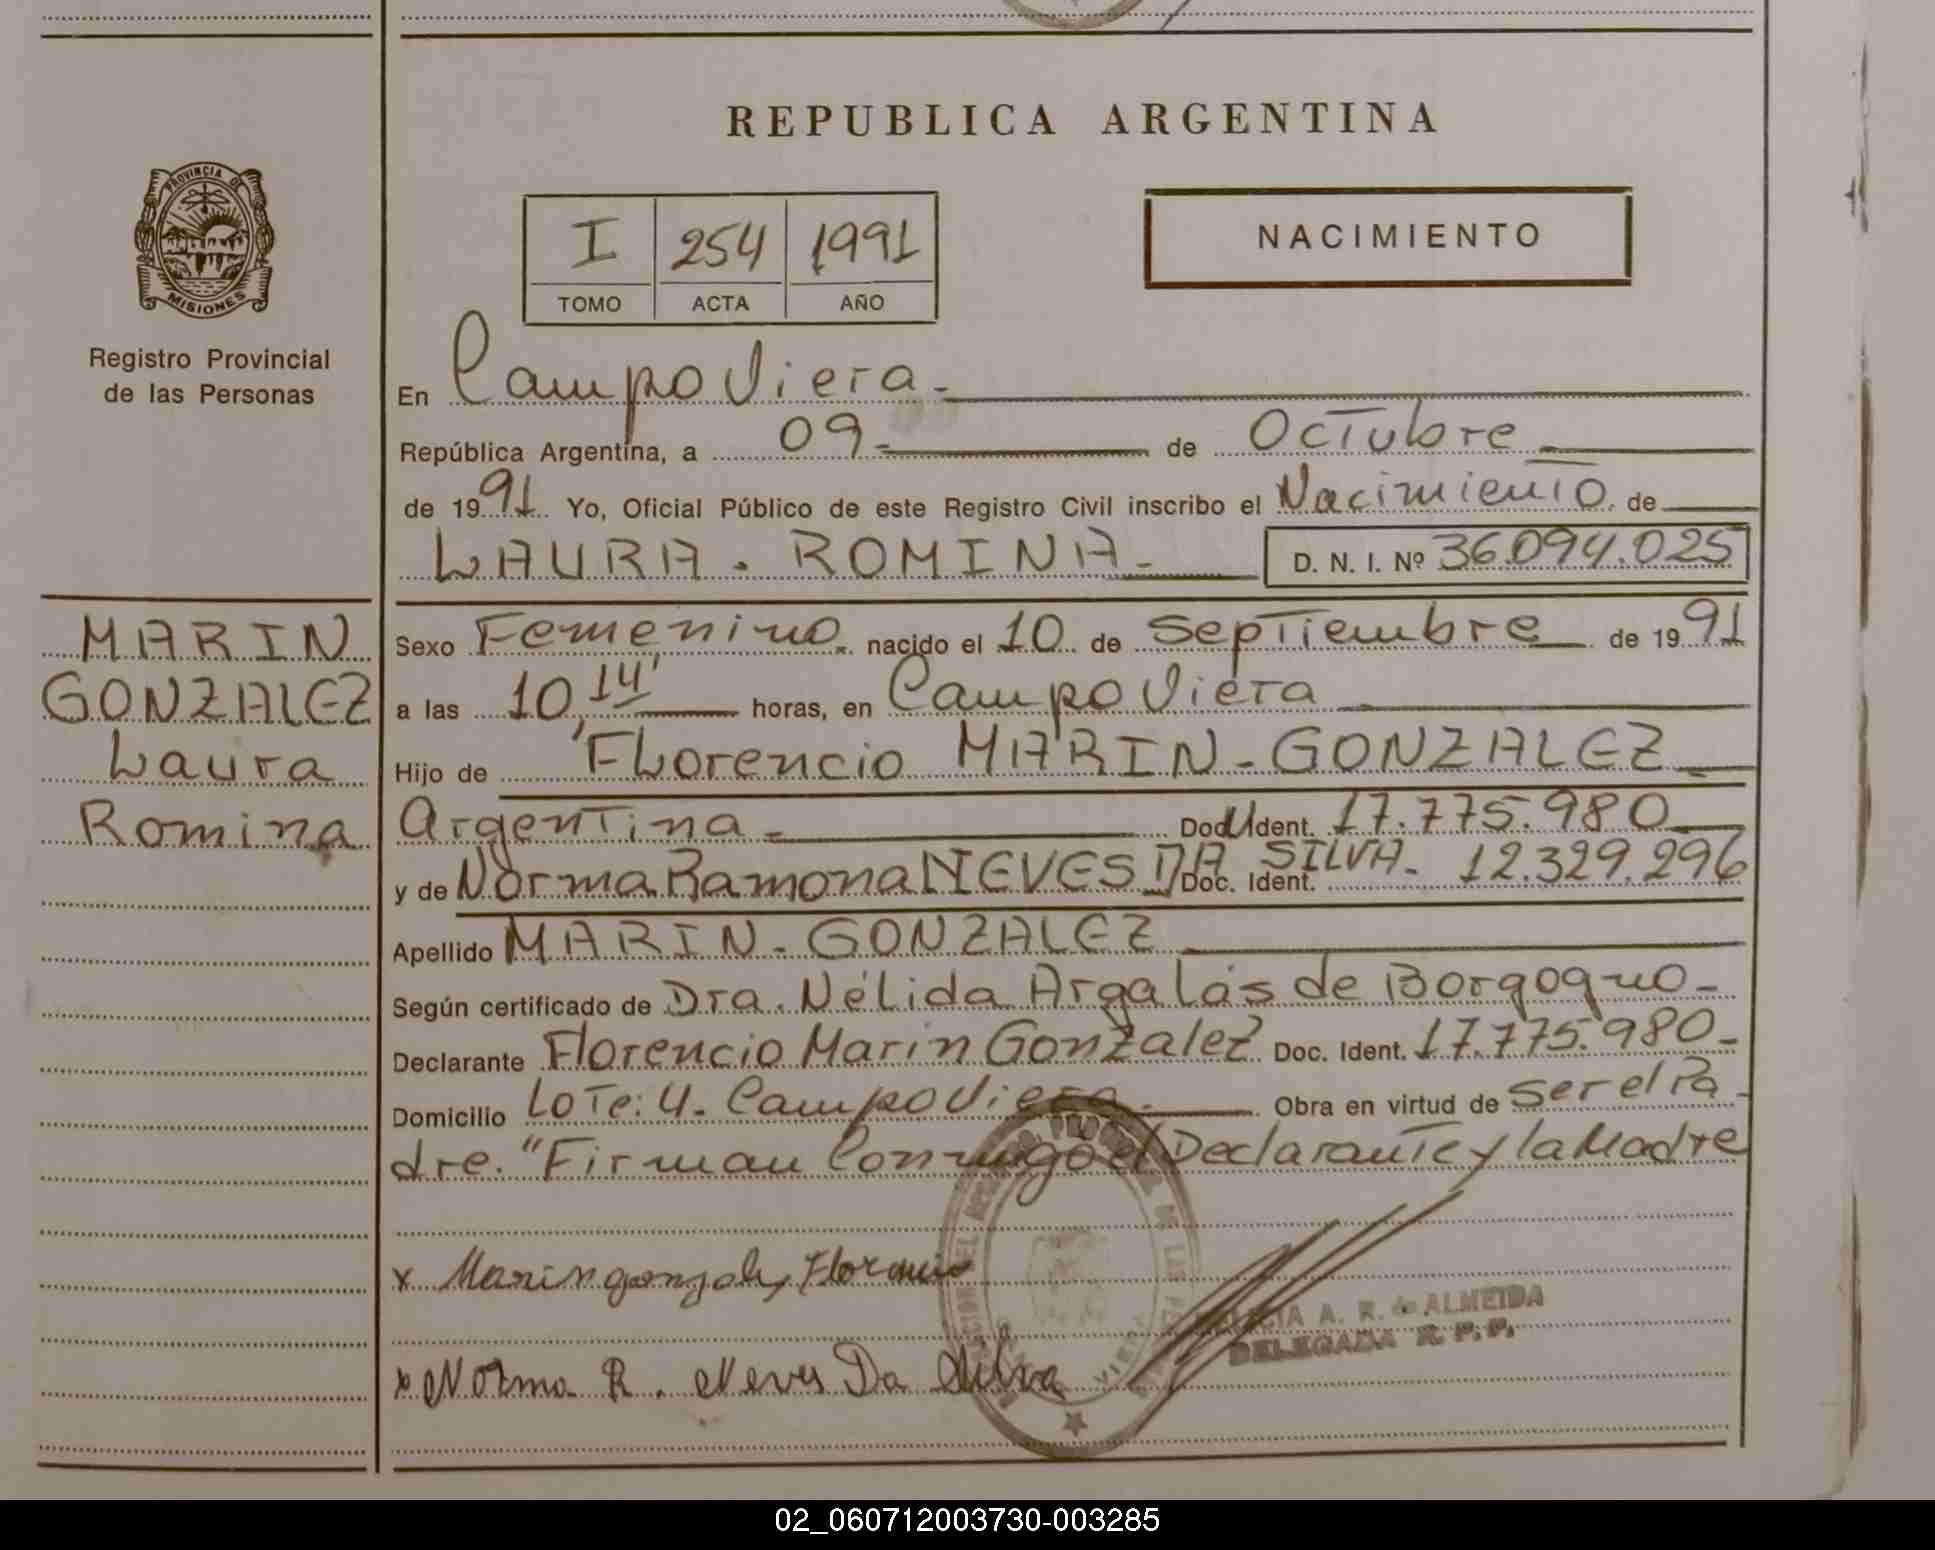 REPUBLICA ARGENTINA
PROVINCIA DE
MISIONES
Registro Provincial
de las Personas
I 254 1991
TOMO ACTA AÑO
NACIMIENTO
En Campo Viera.
República Argentina, a 09 de Octubre
de 1991 Yo, Oficial Público de este Registro Civil inscribo el Nacimiento de
LAURA. ROMINA. D. N. I. Nº 36.094.025
MARIN
GONZALEZ
Laura
Romina
Sexo Femenino. nacido el 10 de Septiembre de 1991
a las 10,14' horas, en Campo Viera
Hijo de Florencio MARIN-GONZALEZ
Argentina Doc. U Ident. 17.775.980
y de Norma Ramona NEVES DA SILVA- Doc. Ident. 12.329.296
Apellido MARIN-GONZALEZ
Según certificado de Dra. Nélida Argalás de Borgogno-
Declarante Florencio Marin Gonzalez Doc. Ident. 17.775.980-
Domicilio Lote: 4. Campo Viera. Obra en virtud de ser el Pa-
dre. "Firman Conmigo el Declarante y la Madre
x Marin gonzalez Florencio
A. R. de ALMEIDA
DELEGADA R. P. P.
x Norma R. Neves Da Silva
02_060712003730-003285